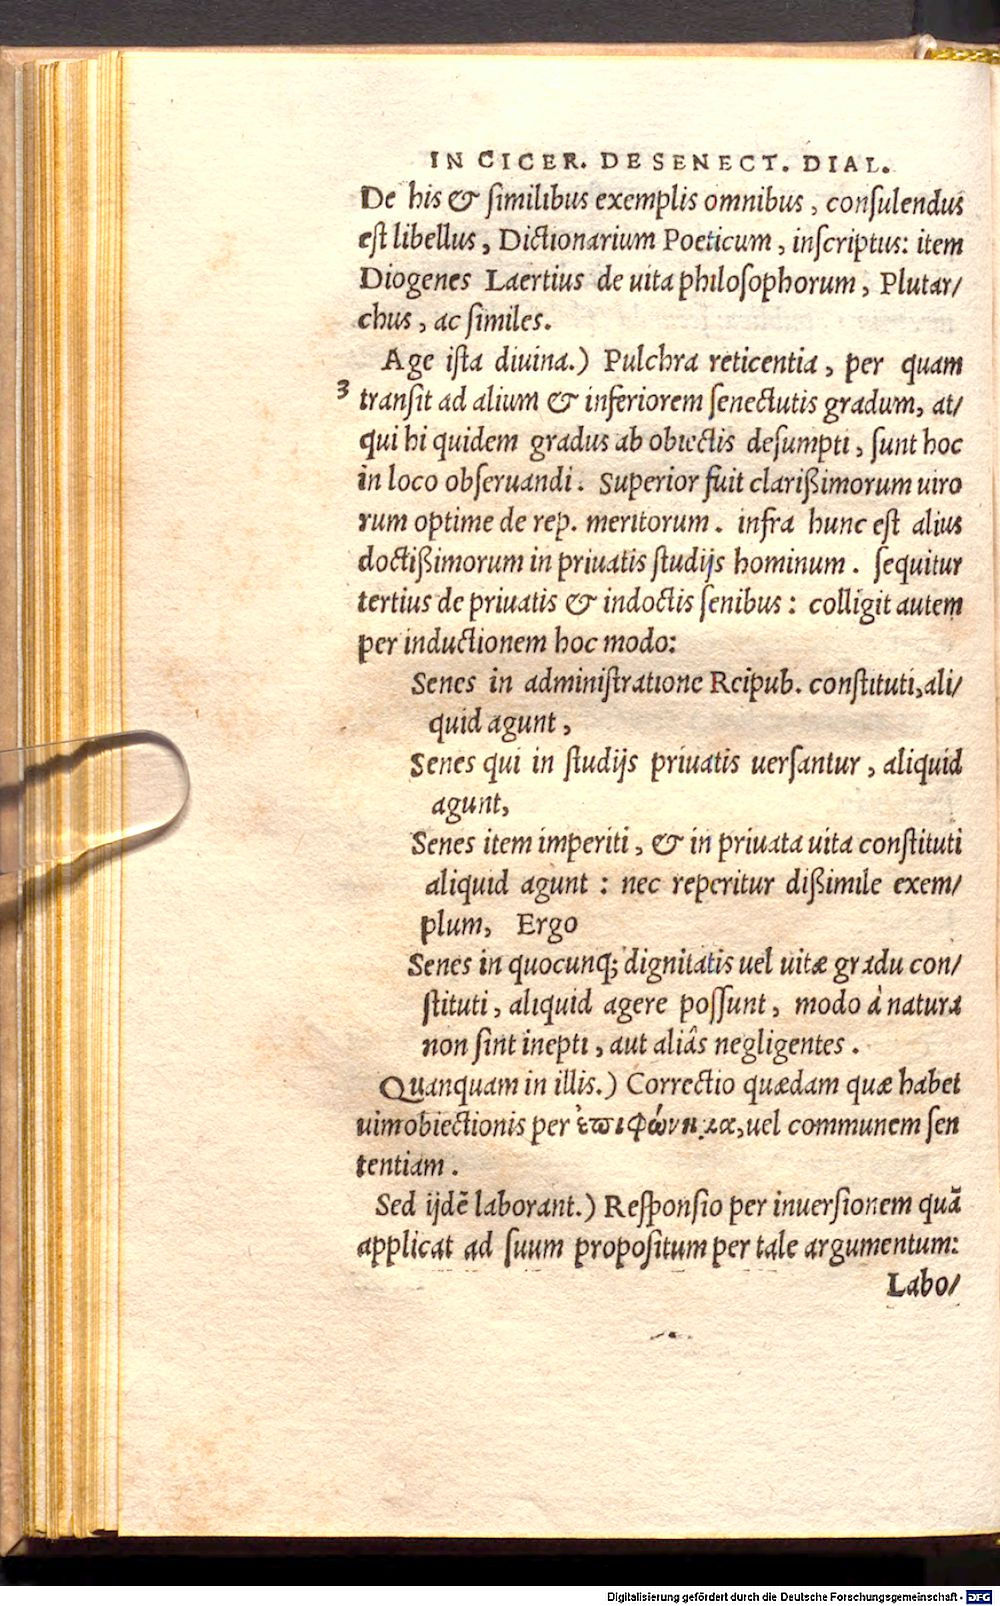 IN CICER. DE SENECT. DIAL.
De his & similibus exemplis omnibus, consulendus
est libellus, Dictionarium Poeticum, inscriptus: item
Diogenes Laertius de uita philosophorum, Plutar/
chus, ac similes.
Age ista diuina.) Pulchra reticentia, per quam
3 transit ad alium & inferiorem senectutis gradum, at/
qui hi quidem gradus ab obiectis desumpti, sunt hoc
in loco obseruandi. Superior fuit clarißimorum uiro
rum optime de rep. meritorum. infra hunc est alius
doctißimorum in priuatis studijs hominum. sequitur
tertius de priuatis & indoctis senibus: colligit autem
per inductionem hoc modo:
Senes in administratione Reipub. constituti, ali/
quid agunt,
Senes qui in studijs priuatis uersantur, aliquid
agunt,
Senes item imperiti, & in priuata uita constituti
aliquid agunt: nec reperitur dißimile exem/
plum, Ergo
Senes in quocunq; dignitatis uel uitæ gradu con/
stituti, aliquid agere possunt, modo à natura
non sint inepti, aut aliâs negligentes.
Quanquam in illis.) Correctio quædam quæ habet
uim obiectionis per ἐπιφώνημα, uel communem sen
tentiam.
Sed ijdẽ laborant.) Responsio per inuersionem quã
applicat ad suum propositum per tale argumentum:
Labo/
Digitalisierung gefördert durch die Deutsche Forschungsgemeinschaft - DFG